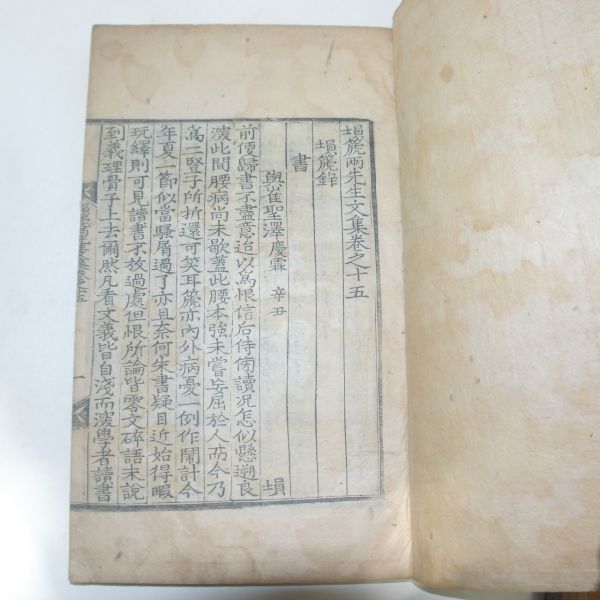 塤篪兩先生文集卷之十五
塤篪錄
書
與崔聖澤慶霖 辛丑 塤
前便歸書不盡意迨以爲恨信后侍傍讀況怎似懸遡良
深此間腰病尚未歇蓋此腰本強未嘗妄屈於人而今乃
爲二豎子所折還可笑耳篪亦內外病憂一例作鬧計今
年夏一節似當騷屑過了亦且奈何朱書疑目近始得暇
玩繹則可見讀書不放過處但恨所論皆零文碎語未說
到義理骨子上去爾然凡看文義皆自淺而深學者讀書